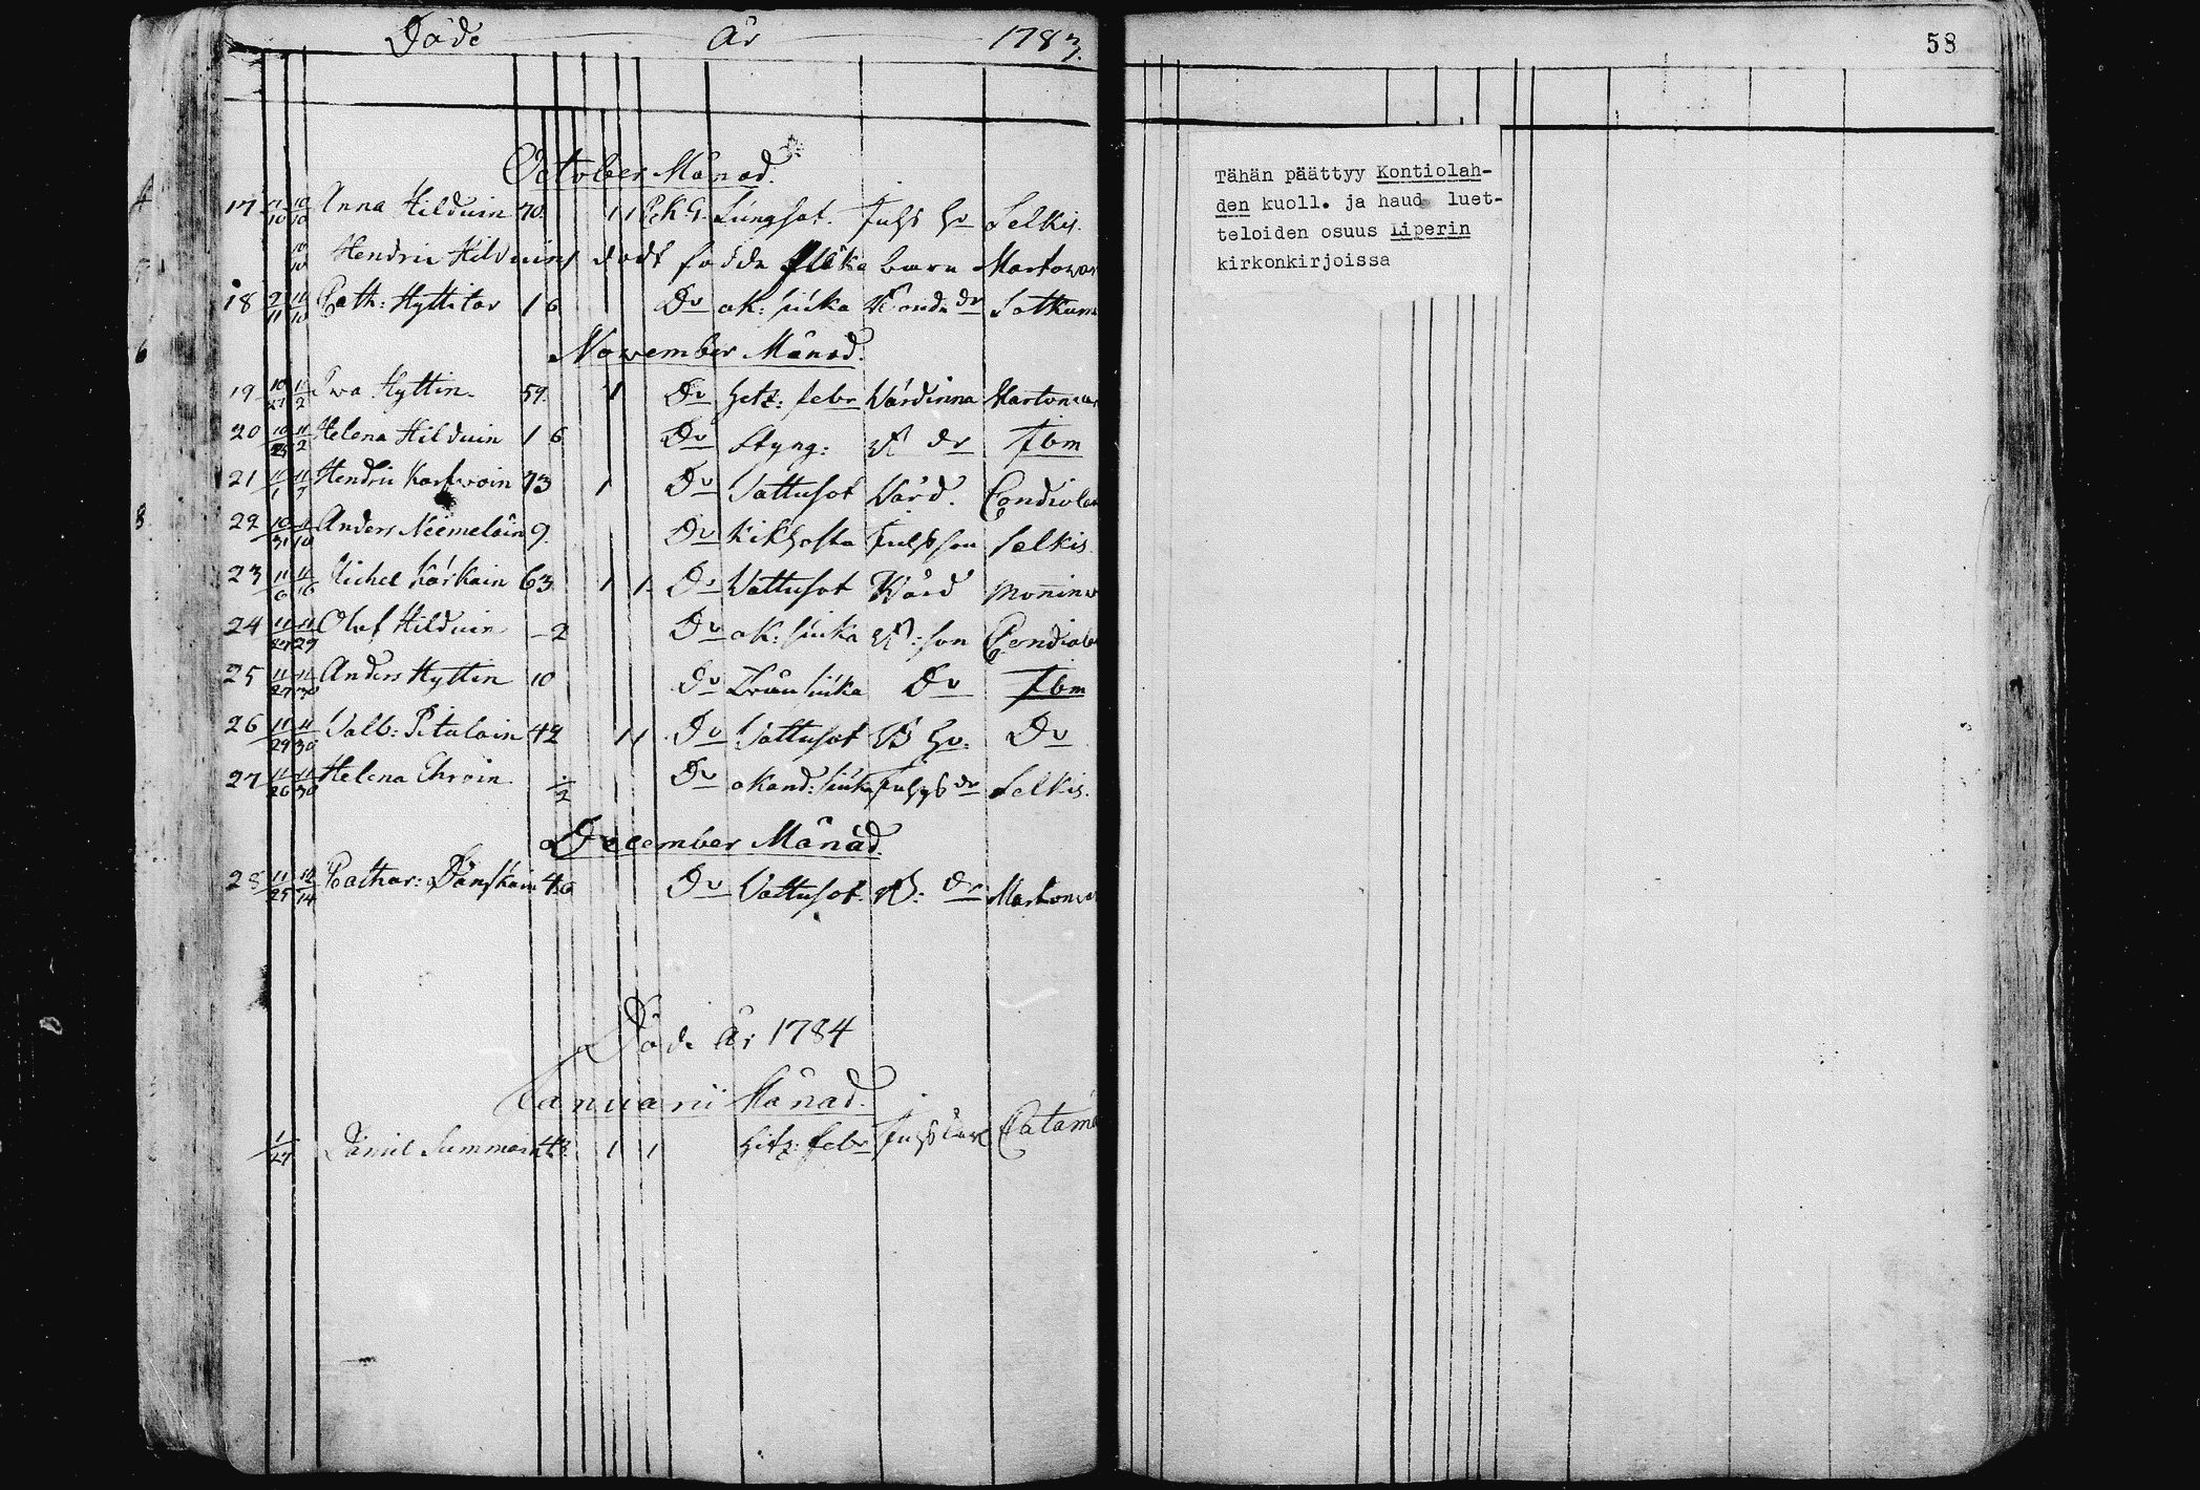 Döde År 1783.
October Månad.
17 11/10 19/10 Anna Hilduin 70. 1 1 Lungsot. Hu Selkis.
Hendric Hilduins dödt födde flicka barn Martowar
18 2/11 Cath: Hyttitar 1 6 Do ok: siuka dr Sotkum
November Månad.
19 10/27 11/2 Ewa Hyttin 59. 1 Do hetz: febr Värdinna Martonwa
20 11/2 Helena Hilduin 1 6 Do Styng: dr Ibm
21 11/1 Hendric Karfwoin 73 1 Do Vattusot Värd. Condiola
22 10/31 11/10 Anders Neemeläin 9. Do kikhosta son Selkis.
23 11/16 Michel Kärkäin 63. 1 1. Do Wattusot Wärd Moninw
24 11/27 11/29 Olof Hilduin - 2 Do ok: siuka son Condiola
25 11/27 11/30 Anders Hyttin 10 Do Tränsiuka Do Ibm
26 11/29 11/30 Valb: Pitulain 42 1 1 Do Vattusot B Hu: Do
27 11/26 11/30 Helena Ehroin 1/2 Do okänd: siuka dr Selkis.
December Månad.
28 11/25 12/14 Cathar: Danskain 40 Do Vattusot. dr Martonwa
Döde År 1784
Januarii Månad.
1/27 Daniel Summain 43. 1 1 hitz: febr Catama
58
Tähän päättyy Kontiolah-
den kuoll. ja haud luet-
teloiden osuus Liperin
kirkonkirjoissa